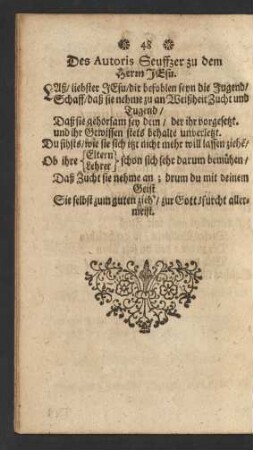 ❀ 48 ❀
Des Autoris Seuffzer zu dem
Herrn JEsu.
LAß/ liebster JEsu/ dir befohlen seyn die Jugend/
Schaff/ daß sie nehme zu an Weißheit Zucht und
Tugend/
Daß sie gehorsam sey dem/ der ihr vorgesetzt.
und ihr Gewissen stets behalte unverletzt.
Du sihsts/ wie sie sich itzt nicht mehr will lassen ziehē/
Ob ihre {Eltern Lehrer} schon sich sehr darum bemühen/
Daß Zucht sie nehme an; drum du mit deinem
Geist
Sie selbst zum guten zieh'/ zur Gott/furcht aller-
meist.